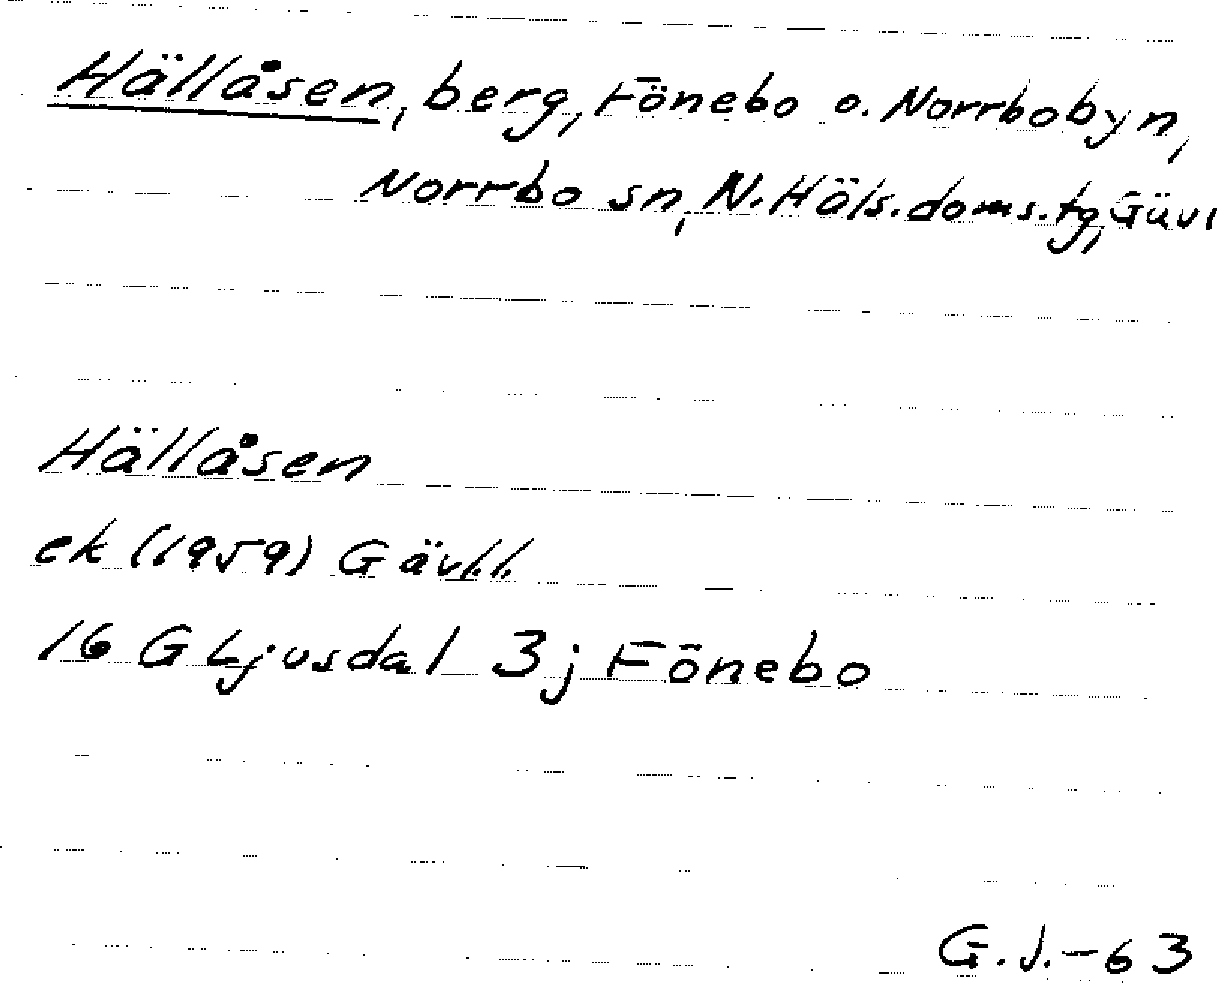 Hällåsen, berg, Fönebo o. Norrbobyn,
Norrbo sn, N. Häls. doms. tg, Gävl
Hällåsen
ek (1959) Gävl.l.
16 G Ljusdal 3j Fönebo
G.J.-63